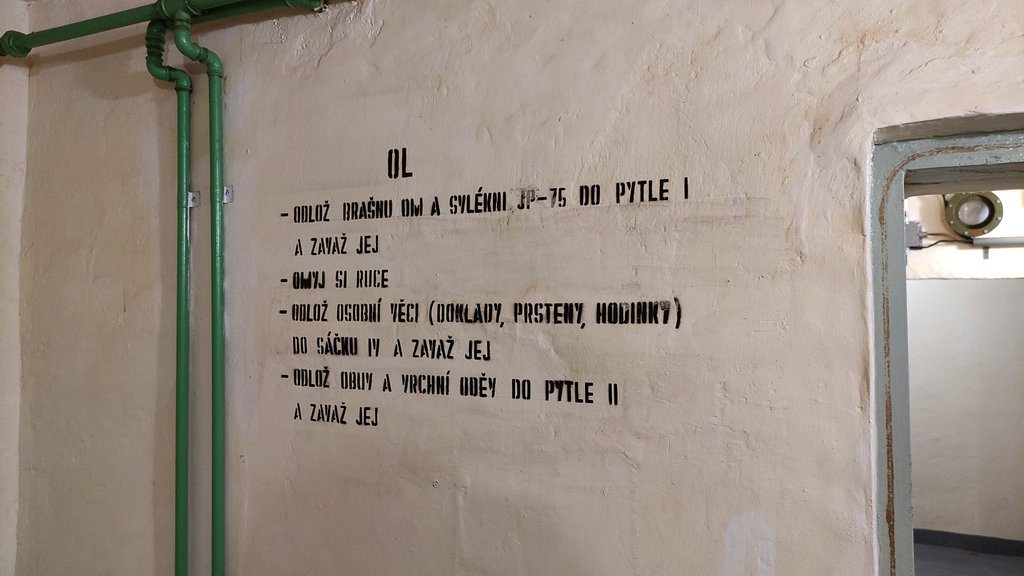 OL
- ODLOŽ BRAŠNU OM A SVLÉKNI JP-75 DO PYTLE I
A ZAVAŽ JEJ
- OMYJ SI RUCE
- ODLOŽ OSOBNÍ VĚCI (DOKLADY, PRSTENY, HODINKY)
DO SÁČKU IV A ZAVAŽ JEJ
- ODLOŽ OBUV A VRCHNÍ ODĚV DO PYTLE II
A ZAVAŽ JEJ